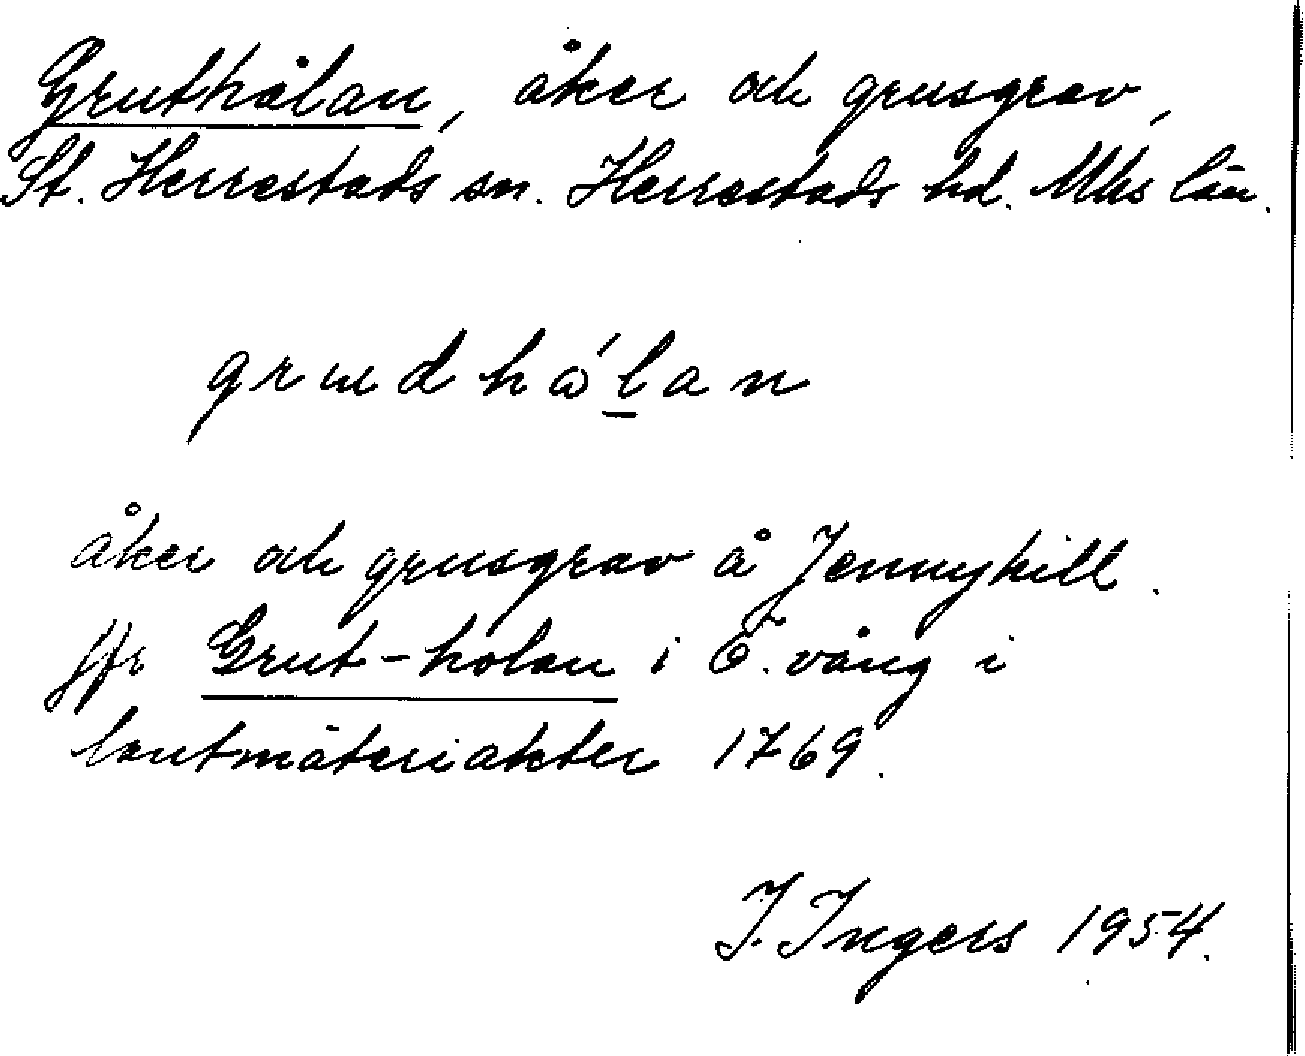 Gruthålan, åker och grusgrav,
St. Herrestads sn. Herrestads hd. Mhs län.
åker och grusgrav å Jennyhill.
jfr Grut-holan i Ö. vång i
lantmäteriakter 1769.
I. Ingers 1954.